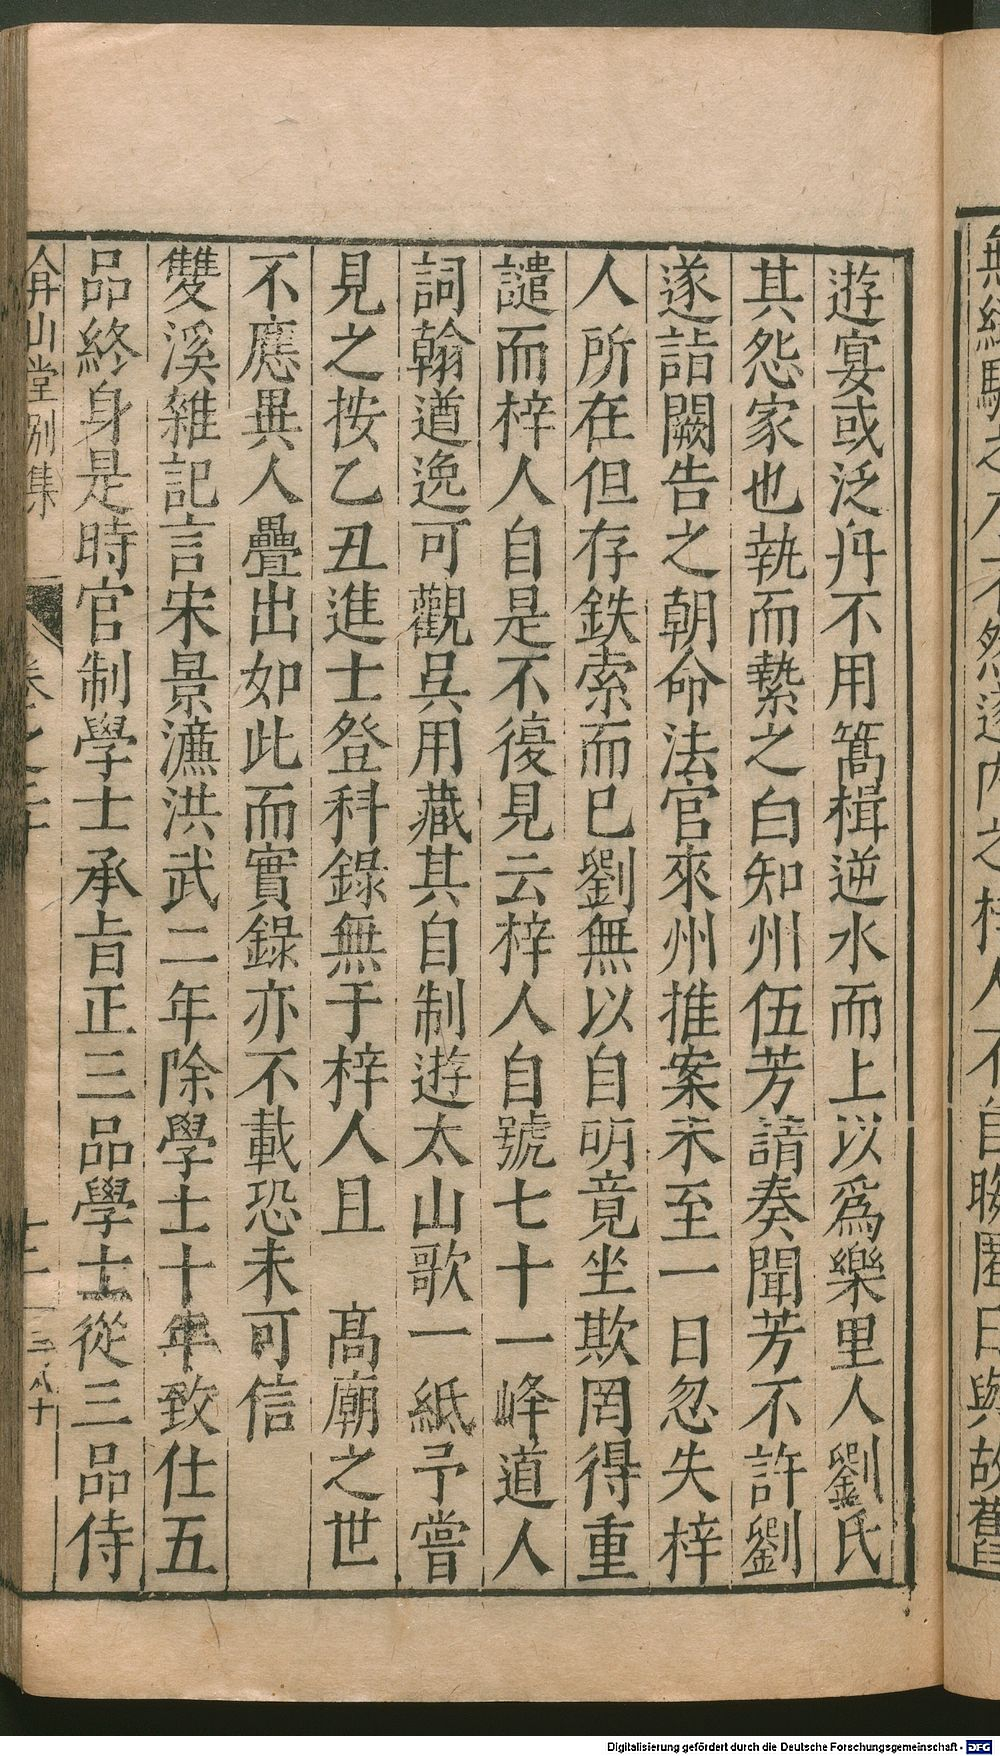 遊宴或泛舟不用篙楫逆水而上以爲樂里人劉氏
其怨家也執而縶之白知州伍芳請奏聞芳不許劉
遂詣闕告之朝命法官來州推案未至一日忽失梓
人所在但存鉄索而已劉無以自明竟坐欺罔得重
譴而梓人自是不復見云梓人自號七十一峰道人
詞翰遒逸可觀吳用藏其自制遊太山歌一紙予嘗
見之按乙丑進士登科錄無于梓人且　高廟之世
不應異人疊出如此而實錄亦不載恐未可信
雙溪雜記言宋景濂洪武二年除學士十年致仕五
品終身是時官制學士承旨正三品學士從三品侍
弇山堂別集
卷之二十
Digitalisierung gefördert durch die Deutsche Forschungsgemeinschaft - DFG